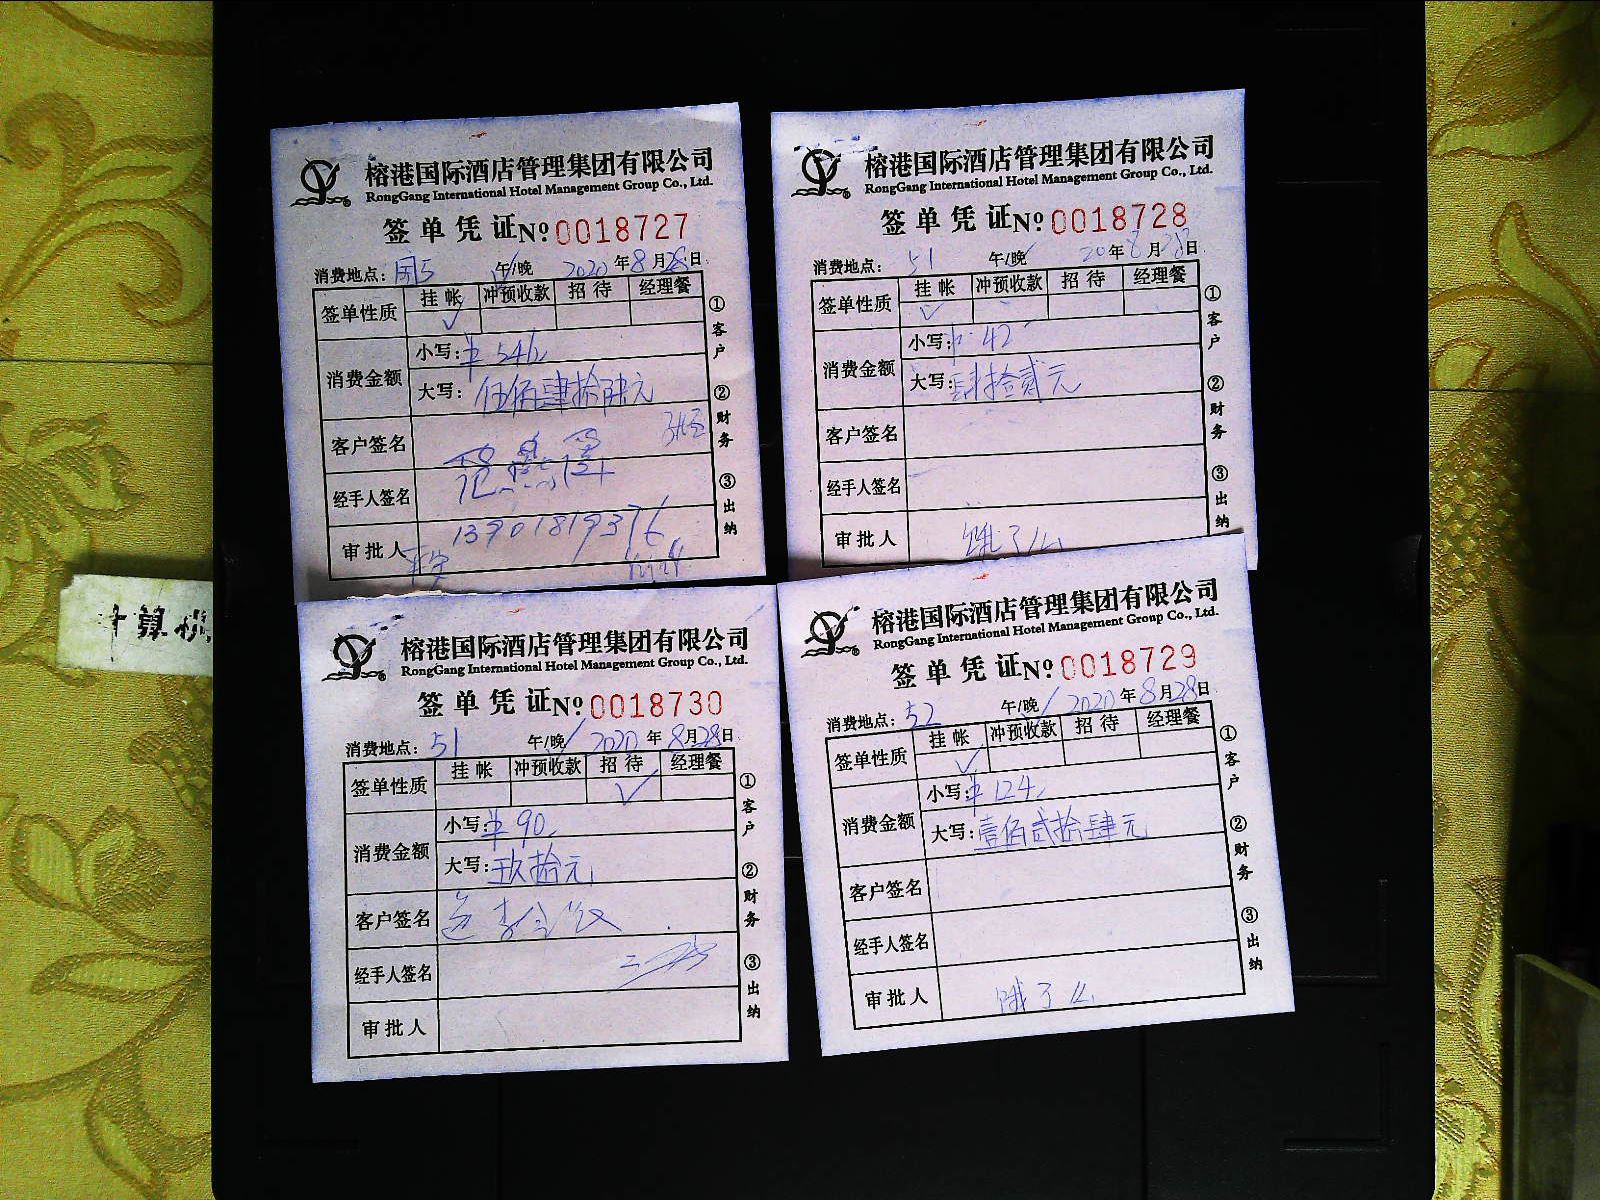 榕港国际酒店管理集团有限公司
RongGang International Hotel Management Group Co., Ltd.
签单凭证№0018727
消费地点: 午/晚 2020年8月28日
签单性质 挂帐 冲预收款 招待 经理餐
消费金额 小写:¥546
大写:伍佰肆拾陆元
客户签名
经手人签名
13901819376
审批人
①客户 ②财务 ③出纳
榕港国际酒店管理集团有限公司
RongGang International Hotel Management Group Co., Ltd.
签单凭证№0018728
消费地点: 51 午/晚 20年8月28日
签单性质 挂帐 冲预收款 招待 经理餐
消费金额 小写:¥42
大写:肆拾贰元
客户签名
经手人签名
审批人 饿了么
①客户 ②财务 ③出纳
榕港国际酒店管理集团有限公司
RongGang International Hotel Management Group Co., Ltd.
签单凭证№0018730
消费地点: 51 午/晚 2020年8月28日
签单性质 挂帐 冲预收款 招待 经理餐
消费金额 小写:¥90
大写:玖拾元
客户签名 送李
经手人签名
审批人
①客户 ②财务 ③出纳
榕港国际酒店管理集团有限公司
RongGang International Hotel Management Group Co., Ltd.
签单凭证№0018729
消费地点: 52 午/晚 2020年8月28日
签单性质 挂帐 冲预收款 招待 经理餐
消费金额 小写:¥124
大写:壹佰贰拾肆元
客户签名
经手人签名
审批人 饿了么
①客户 ②财务 ③出纳
计算机